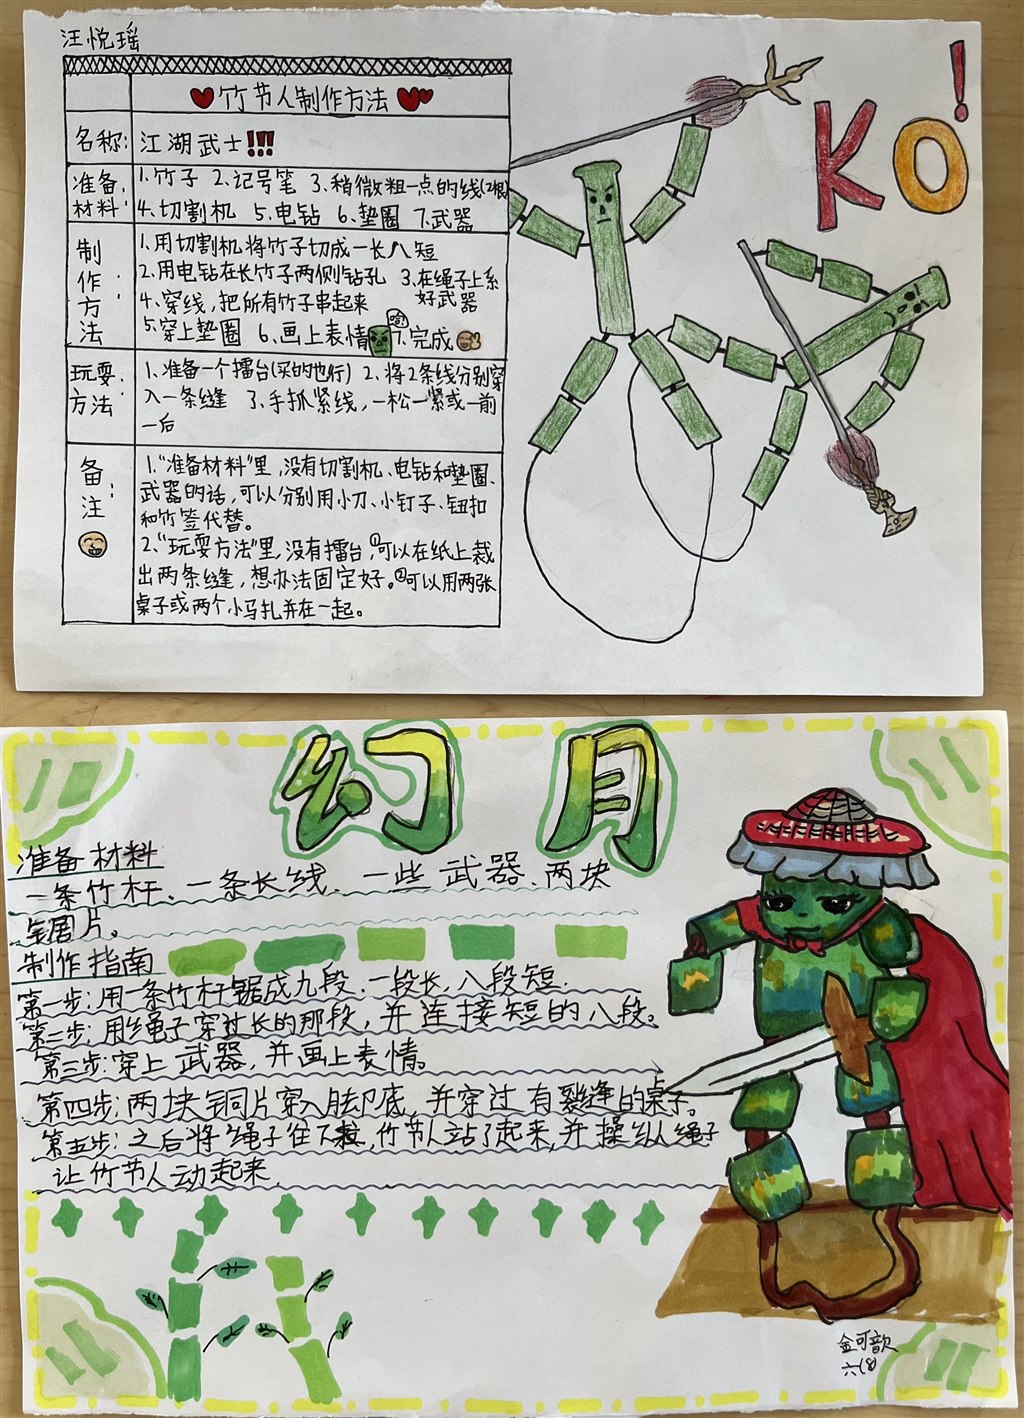 汪悦瑶
竹节人制作方法
名称: 江湖武士!!!
准备材料: 1.竹子 2.记号笔 3.稍微粗一点的线(2根)
4.切割机 5.电钻 6.垫圈 7.武器
制作方法: 1.用切割机将竹子切成一长八短
2.用电钻在长竹子两侧钻孔 3.在绳子上系好武器
4.穿线,把所有竹子串起来
5.穿上垫圈 6.画上表情 哈! 7.完成
玩耍方法: 1.准备一个擂台(买的也行) 2.将2条线分别穿
入一条缝 3.手抓紧线,一松一紧或一前
一后
备注: 1.“准备材料”里,没有切割机、电钻和垫圈、
武器的话,可以分别用小刀、小钉子、钮扣
和竹签代替。
2.“玩耍方法”里,没有擂台,①可以在纸上裁
出两条缝,想办法固定好。②可以用两张
桌子或两个小马扎并在一起。
KO!
幻月
准备材料
一条竹杆、一条长线、一些武器、两块
锯片。
制作指南
第一步:用一条竹杆锯成九段.一段长,八段短.
第二步:用绳子穿过长的那段,并连接短的八段。
第三步:穿上武器,并画上表情。
第四步:两块铜片穿入脚底,并穿过有裂缝的桌子。
第五步:之后将绳子往下拉,竹节人站了起来,并操纵绳子
让竹节人动起来.
金可歆
六(8)